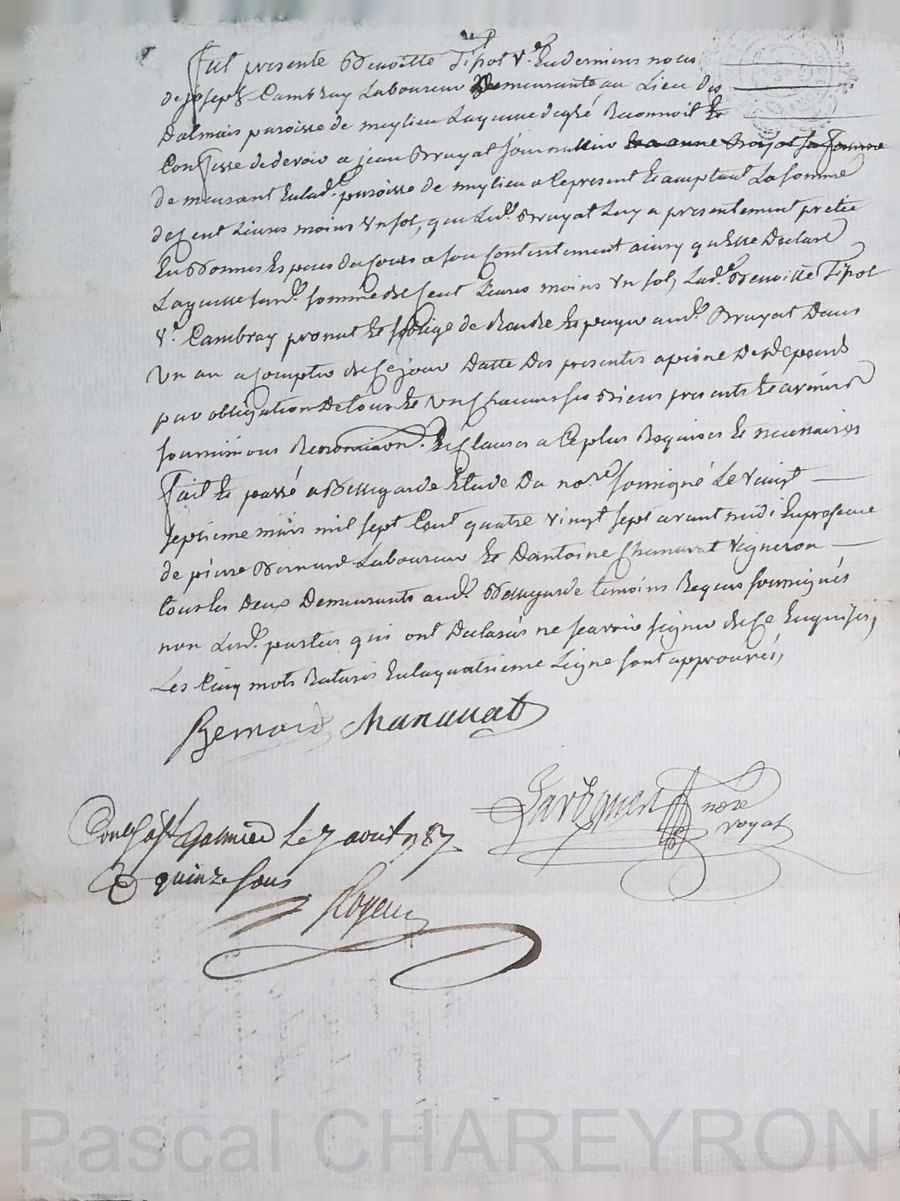 Fut presente Benoitte Tipot Ve. En derniere noce
de joseph Cambray Laboureur Demeurante au Lieu des
Dalmais paroisse de meylieu Laquelle de gré Reconnoit Et
Confesse de devoir a jean Bruyat journallier
demeurant En lade. paroisse de meylieu a Ce present Et acceptant La somme
de Cent Livres moins Un sol, que Led. Bruyat Luy a presentement pretée
En bonnes Especes du Cours a son Contentement ainsy quElle Declare
Laquelle susd. somme de Cent Livres moins Un sol, Lade. Benoitte Tipot
Ve. Cambray promet Et soblige de Rendre Et payer aud. Bruyat Dans
Un an a Compter de Ce jour Datte Des presentes a peine De tous Depends
par obligation De tous Et Un Chacuns ses Biens presents Et avenirs
soumissions Renonciaon. Et Clauses a Ce plus Requises Et necessaires
Fait Et passé a Bellegarde Etude Du nore. soussigné Le vingt
septieme mars mil sept Cent quatre vingt sept avant midi En presence
de pierre Bernard Laboureur Et Dantoine Chanavat Vigneron
tous les Deux Demeurants aud. Bellegarde temoins Requis soussignés
non Lesd. parties qui ont Declarés ne scavoir signer de Ce Enquises,
Les Cinq mots Raturés En la quatrieme Ligne sont approuvés,
Bernard Chanavat
nore
royal
Galmier Le 7 avril 1787.
quinze sous
Pascal CHAREYRON